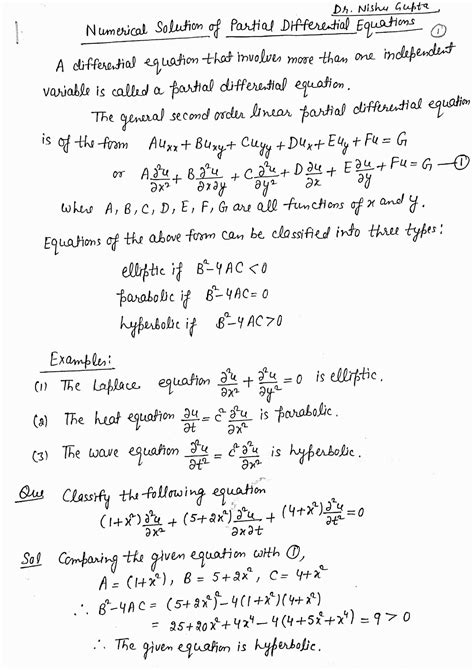 Dr. Nishu Gupta
Numerical Solution of Partial Differential Equations ①
A differential equation that involves more than one independent
variable is called a partial differential equation.
The general second order linear partial differential equation
is of the form Auxx + Buxy + Cuyy + Dux + Euy + Fu = G
or A ∂²u/∂x² + B ∂²u/∂x∂y + C ∂²u/∂y² + D ∂u/∂x + E ∂u/∂y + Fu = G — ①
where A, B, C, D, E, F, G are all functions of x and y.
Equations of the above form can be classified into three types:
elliptic if B²-4AC < 0
parabolic if B²-4AC = 0
hyperbolic if B²-4AC > 0
Examples:
(1) The Laplace equation ∂²u/∂x² + ∂²u/∂y² = 0 is elliptic.
(2) The heat equation ∂u/∂t = c² ∂²u/∂x² is parabolic.
(3) The wave equation ∂²u/∂t² = c² ∂²u/∂x² is hyperbolic.
Que Classify the following equation
(1+x²) ∂²u/∂x² + (5+2x²) ∂²u/∂x∂t + (4+x²) ∂²u/∂t² = 0
Sol Comparing the given equation with ①,
A = (1+x²), B = 5+2x², C = 4+x²
∴ B²-4AC = (5+2x²)² - 4(1+x²)(4+x²)
= 25+20x²+4x⁴ - 4(4+5x²+x⁴) = 9 > 0
∴ The given equation is hyperbolic.